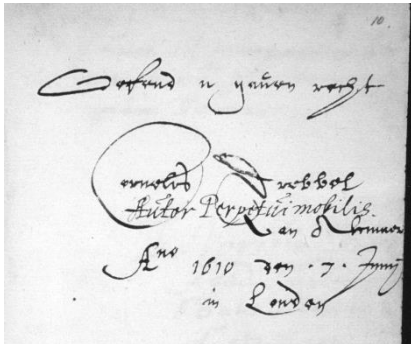 10.
u gaven recht
Cornelis Drebbel
Autor Perpetui mobilis.
van Alcmaer
Ano 1610 den . 7 . Junij
in Londen